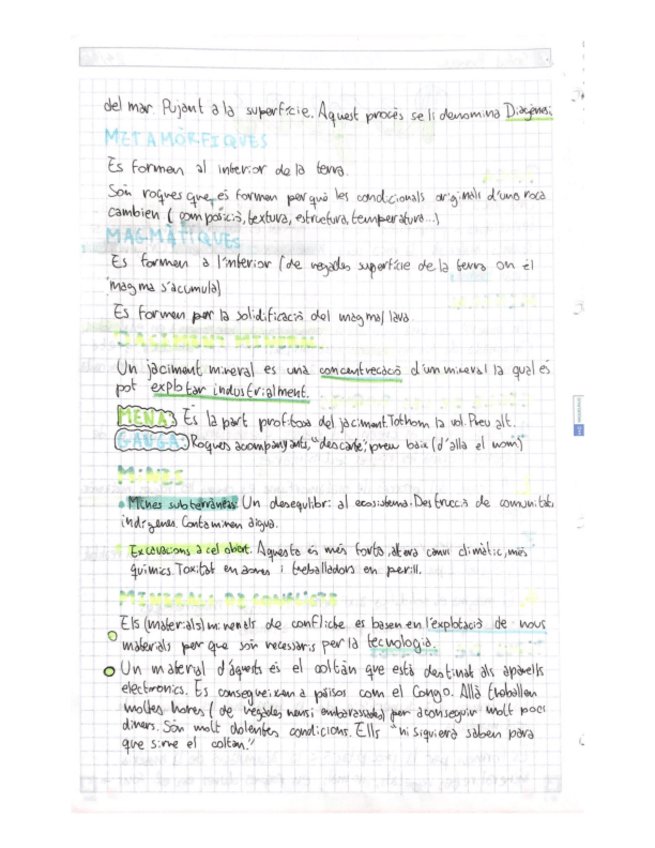 del mar. Pujant a la superfície. Aquest procès se li denomina Diagènsi
METAMÒRFIQUES
Es formen al interior de la terra.
Són roques que es formen perquè les condicionals originals d'una roca
cambien (composició, textura, estructura, temperatura...)
MAGMÀTIQUES
Es formen a l'interior (de vegades superfície de la terra on el
magma s'acumula)
Es formen per la solidificació del magma/lava.
JACIMENT MINERAL
Un jaciment mineral es una concentrecació d'un mineral la qual es
pot explotar industrialment.
MENA: Es la part profitosa del jaciment. Tothom la vol. Preu alt.
GANGA: Roques acompanyants, "descarte", preu baix (d'alla el nom)
MINES
Mines subterrànias Un desequlibri al ecosistema. Destrucció de comunitats
indígenes. Contaminen aigua.
Excavacions a cel obert. Aquesta és més forta, altera canvi climàtic, més
químics. Toxitat en zones i treballadors en perill.
MINERALS DE CONFLICTE
Els (materials) minerals de conflicte es basen en l'explotació de nous
materials per que són necessaris per la tecnologia.
Un material d'aquests és el coltàn que està destinat als aparells
electronics. Es consegueixen a països com el Congo. Allà treballen
moltes hores (de vegades nens i embarassades) per aconseguir molt pocs
diners. Són molt dolentes condicions. Ells "ni siquiera saben para
que sirve el coltan."